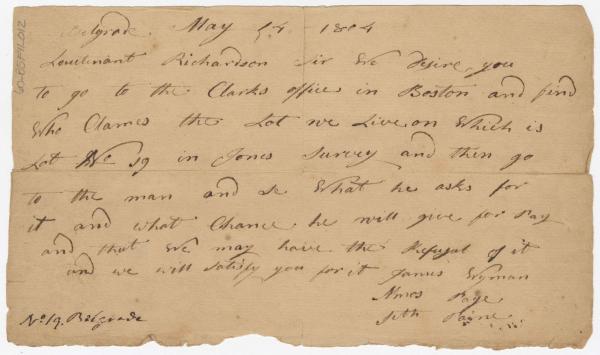 Belgrade May 24 1804
Lieutenant Richardson Sir We desire you
to go to the Clarks office in Boston and find
Who Clames the Lot we Live on Which is
Lot No 59 in Jones Survey and then go
to the man and Se What he asks for
it and what Chance he will give for Pay
and that We may have the Refusal of it
and we will Satisfy you for it James Wyman
Amos Page
Seth Paine
No 19. Belgrade